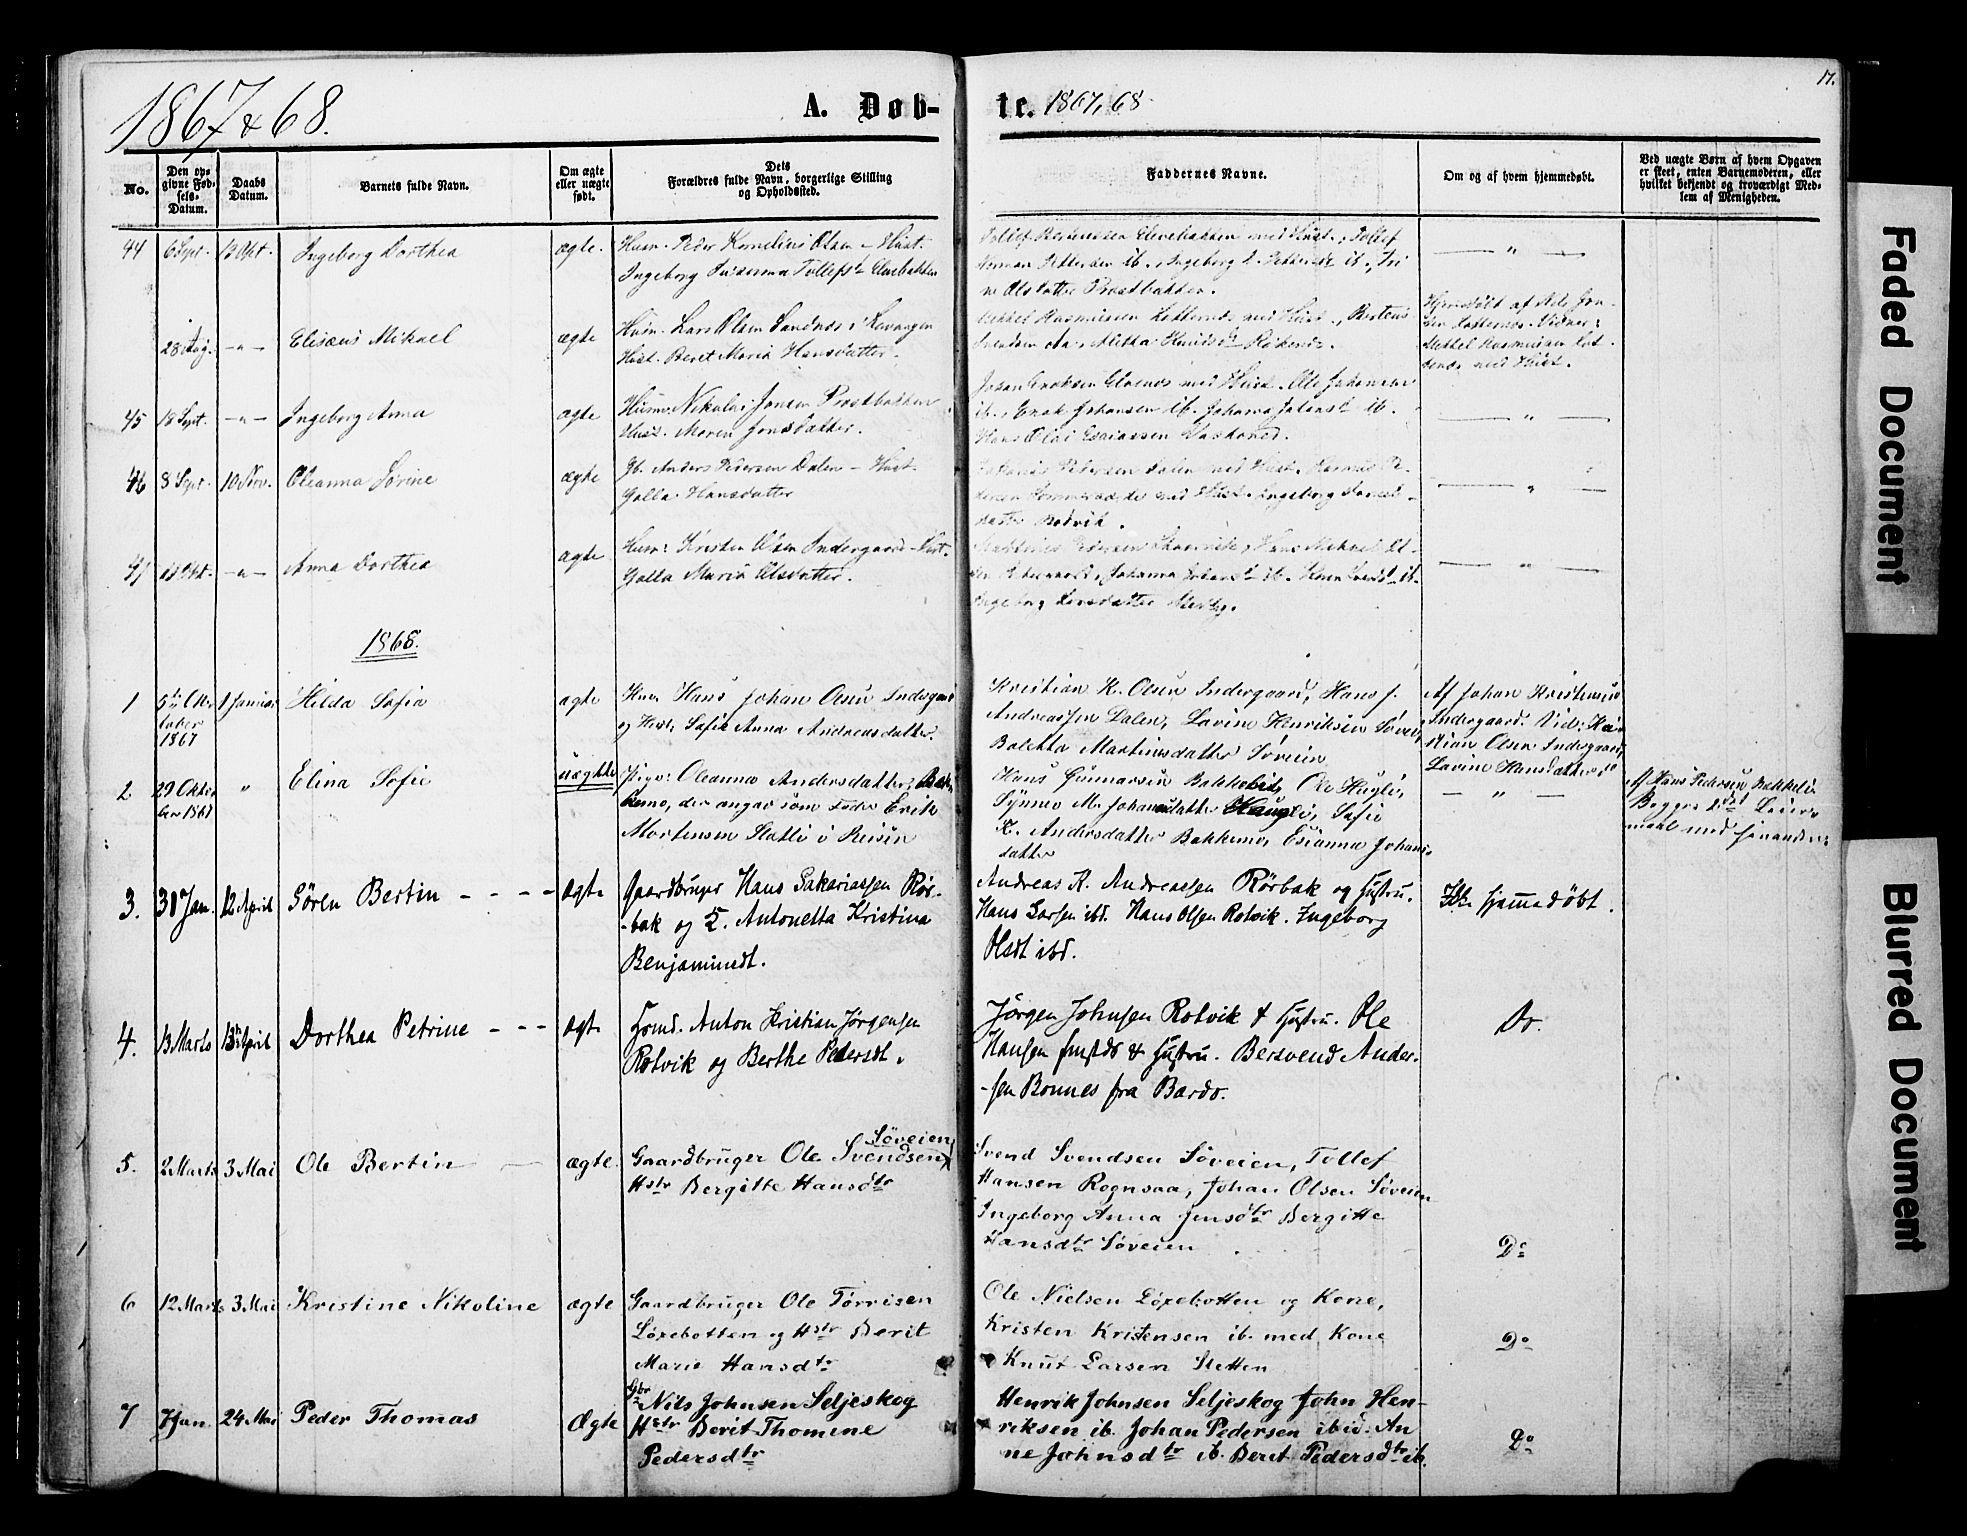 1867 & 68.
A. Døb-
te. 1867, 68
17.
No.
Den op-
givne Fød-
sels-
Datum.
Daabs
Datum.
Barnets fulde Navn.
Om ægte
eller uægte
født.
Dets
Forældres fulde Navn, borgerlige Stilling
og Opholdssted.
Faddernes Navne.
Om og af hvem hjemmedøbt.
Ved uægte Børn af hvem Opgaven
er skeet, enten Barnemoderen, eller
hvilket bekjendt og troværdigt Med-
lem af Menigheden.
44 6 Sept. 13 Okt. Ingeborg Dorthea ægte.
Husm. Peder Kornelius Olsen - Hust.
Ingeborg Tollefsdr
med Hust., Tollef
Norman Pettersen ib., Ingeborg
Olsdatter Prostbakken.
28 Aug. -"- Elisæus Mikael ægte
Husm. Lars Olsen Sandnes i Kovangen
Hust. Beret Maria Hansdatter.
Mekkel Rasmussen med Hust.,
Hjemedøbt af Nils
Mekkel Rasmussen
med Hust.
45 18 Sept. -"- Ingeborg Anna ægte
Husm. Nikolai Jonsen Prostbakken
Hust. Maren Jonsdatter.
Johan med Hust. Ole Johansen
ib., Johansen ib. Johanna ib.
Hans Olai Esaiassen
46 8 Sept. 10 Nov. Oleanna Sørine ægte
Gb. Anders Pedersen Dalen - Hust.
Golla Hansdatter
Pedersen Dalen med Hust. Rasmus Pe-
dersen med Hust. Ingeborg
47 -"- Anna Dorthea ægte
Husm: Kristen Olsen Indergaard - Hust.
Golla Maria Olsdatter.
Pedersen Hans Mekael
Johanna ib.
Ingeborg
1868.
1 5te Ok-
tober
1867
1 Januar Hilda Sofia ægte
Husm Hans Johan Olsen Indergaard
og Hust. Sofie Anna Andreasdatter.
Kristian K. Olsen Indergaard, Hans J.
Andreassen Dalen, Lavine Henriksen Søvei,
Boletta Martinusdatter Søveien
Af Johan Kristiansen
Indergaard. Vid: Kri-
stian Olsen Indergaard,
Lavine Hansdatter
2 29 Okto-
ber 1867
" Elina Sofie uægte
Pige: Oleanna Andersdatter, Bak-
kemo, der angav som Fader Erik
Mortensen Slatli i Reisen
Hans Gunnarsen Bakkebid, Ole Hugli,
Synnev M. Johansdatter Haugli, Sofie
K. Andersdatter Bakkemo, Esianna Johans-
datter
- " -
Af Hans Pedersen Bakkeli
Begges 2det Leier-
maal med hinanden.
3. 31 Jan. 12 April Sören Bertin - - - - ægte
Gaardbruger Hans Sakariassen Rör-
-bak og H. Antonetta Kristina
Benjaminsdt.
Andreas K. Andreassen Rörbak og Hustru.
Hans Larsen ibd. Hans Olsen Rotvik. Ingeborg
Olsdt ibd.
Ikke hjemmedøbt.
4. 13 Marts 13de April Dorthea Petrine - - - ægte
Husmd. Anton Kristian Jörgensen
Rotvik og Berthe Pedersdt.
Jörgen Johnsen Rotvik & Hustru. Ole
Hansen & Hustru. Bersvend Ander-
-sen Bonnes fra Bardo.
Do.
5. 2 Marts 3 Mai Ole Bertin ægte
Søveien
Gaardbruger Ole Svendsen
Hstr Bergitte Hansdtr
Svend Svendsen Søveien, Tollef
Hansen Rognsaa, Johan Olsen Søveien
Ingeborg Anna Jensdtr Bergitte
Hansdtr Søveien
Do
6 12 Marts 3 Mai Kristine Nikoline ægte
Gaardbruger Ole Tørrisen
Løxebotten og Hstr Berit
Marie Hansdtr
Ole Nielsen Løxebotten og Kone,
Kristen Kristensen ib. med Kone
Knut Larsen Sletten
Do
7 7 Jan. 24 Mai Peder Thomas Ægte
Gbr Nils Johnsen Seljeskog
Hstr Berit Thomine
Pedersdtr
Henrik Johnsen Seljeskog John Hen-
riksen ib. Johan Pedersen ibid. An
ne Johnsdtr ib. Berit Pedersdtr ib.
Do
Faded Document
Blurred Document